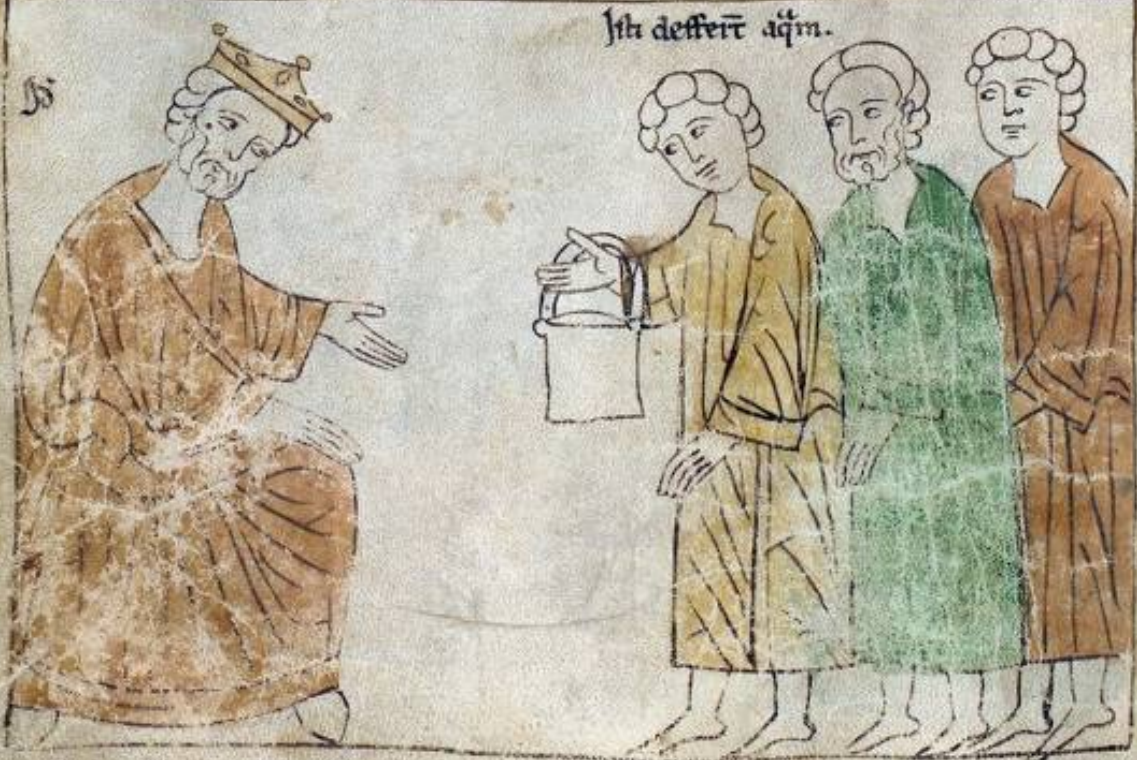 Isti deffert̄ aqᵃm.